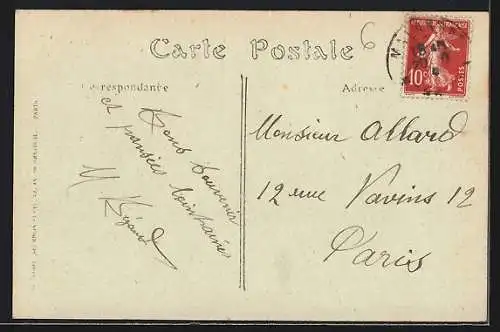 Carte Postale
6
Correspondance
Adresse
RÉPUBLIQUE FRANÇAISE
10c
POSTES
Bons souvenirs
et pensées lointaines
Monsieur Allard
12 rue Vavins 12
Paris